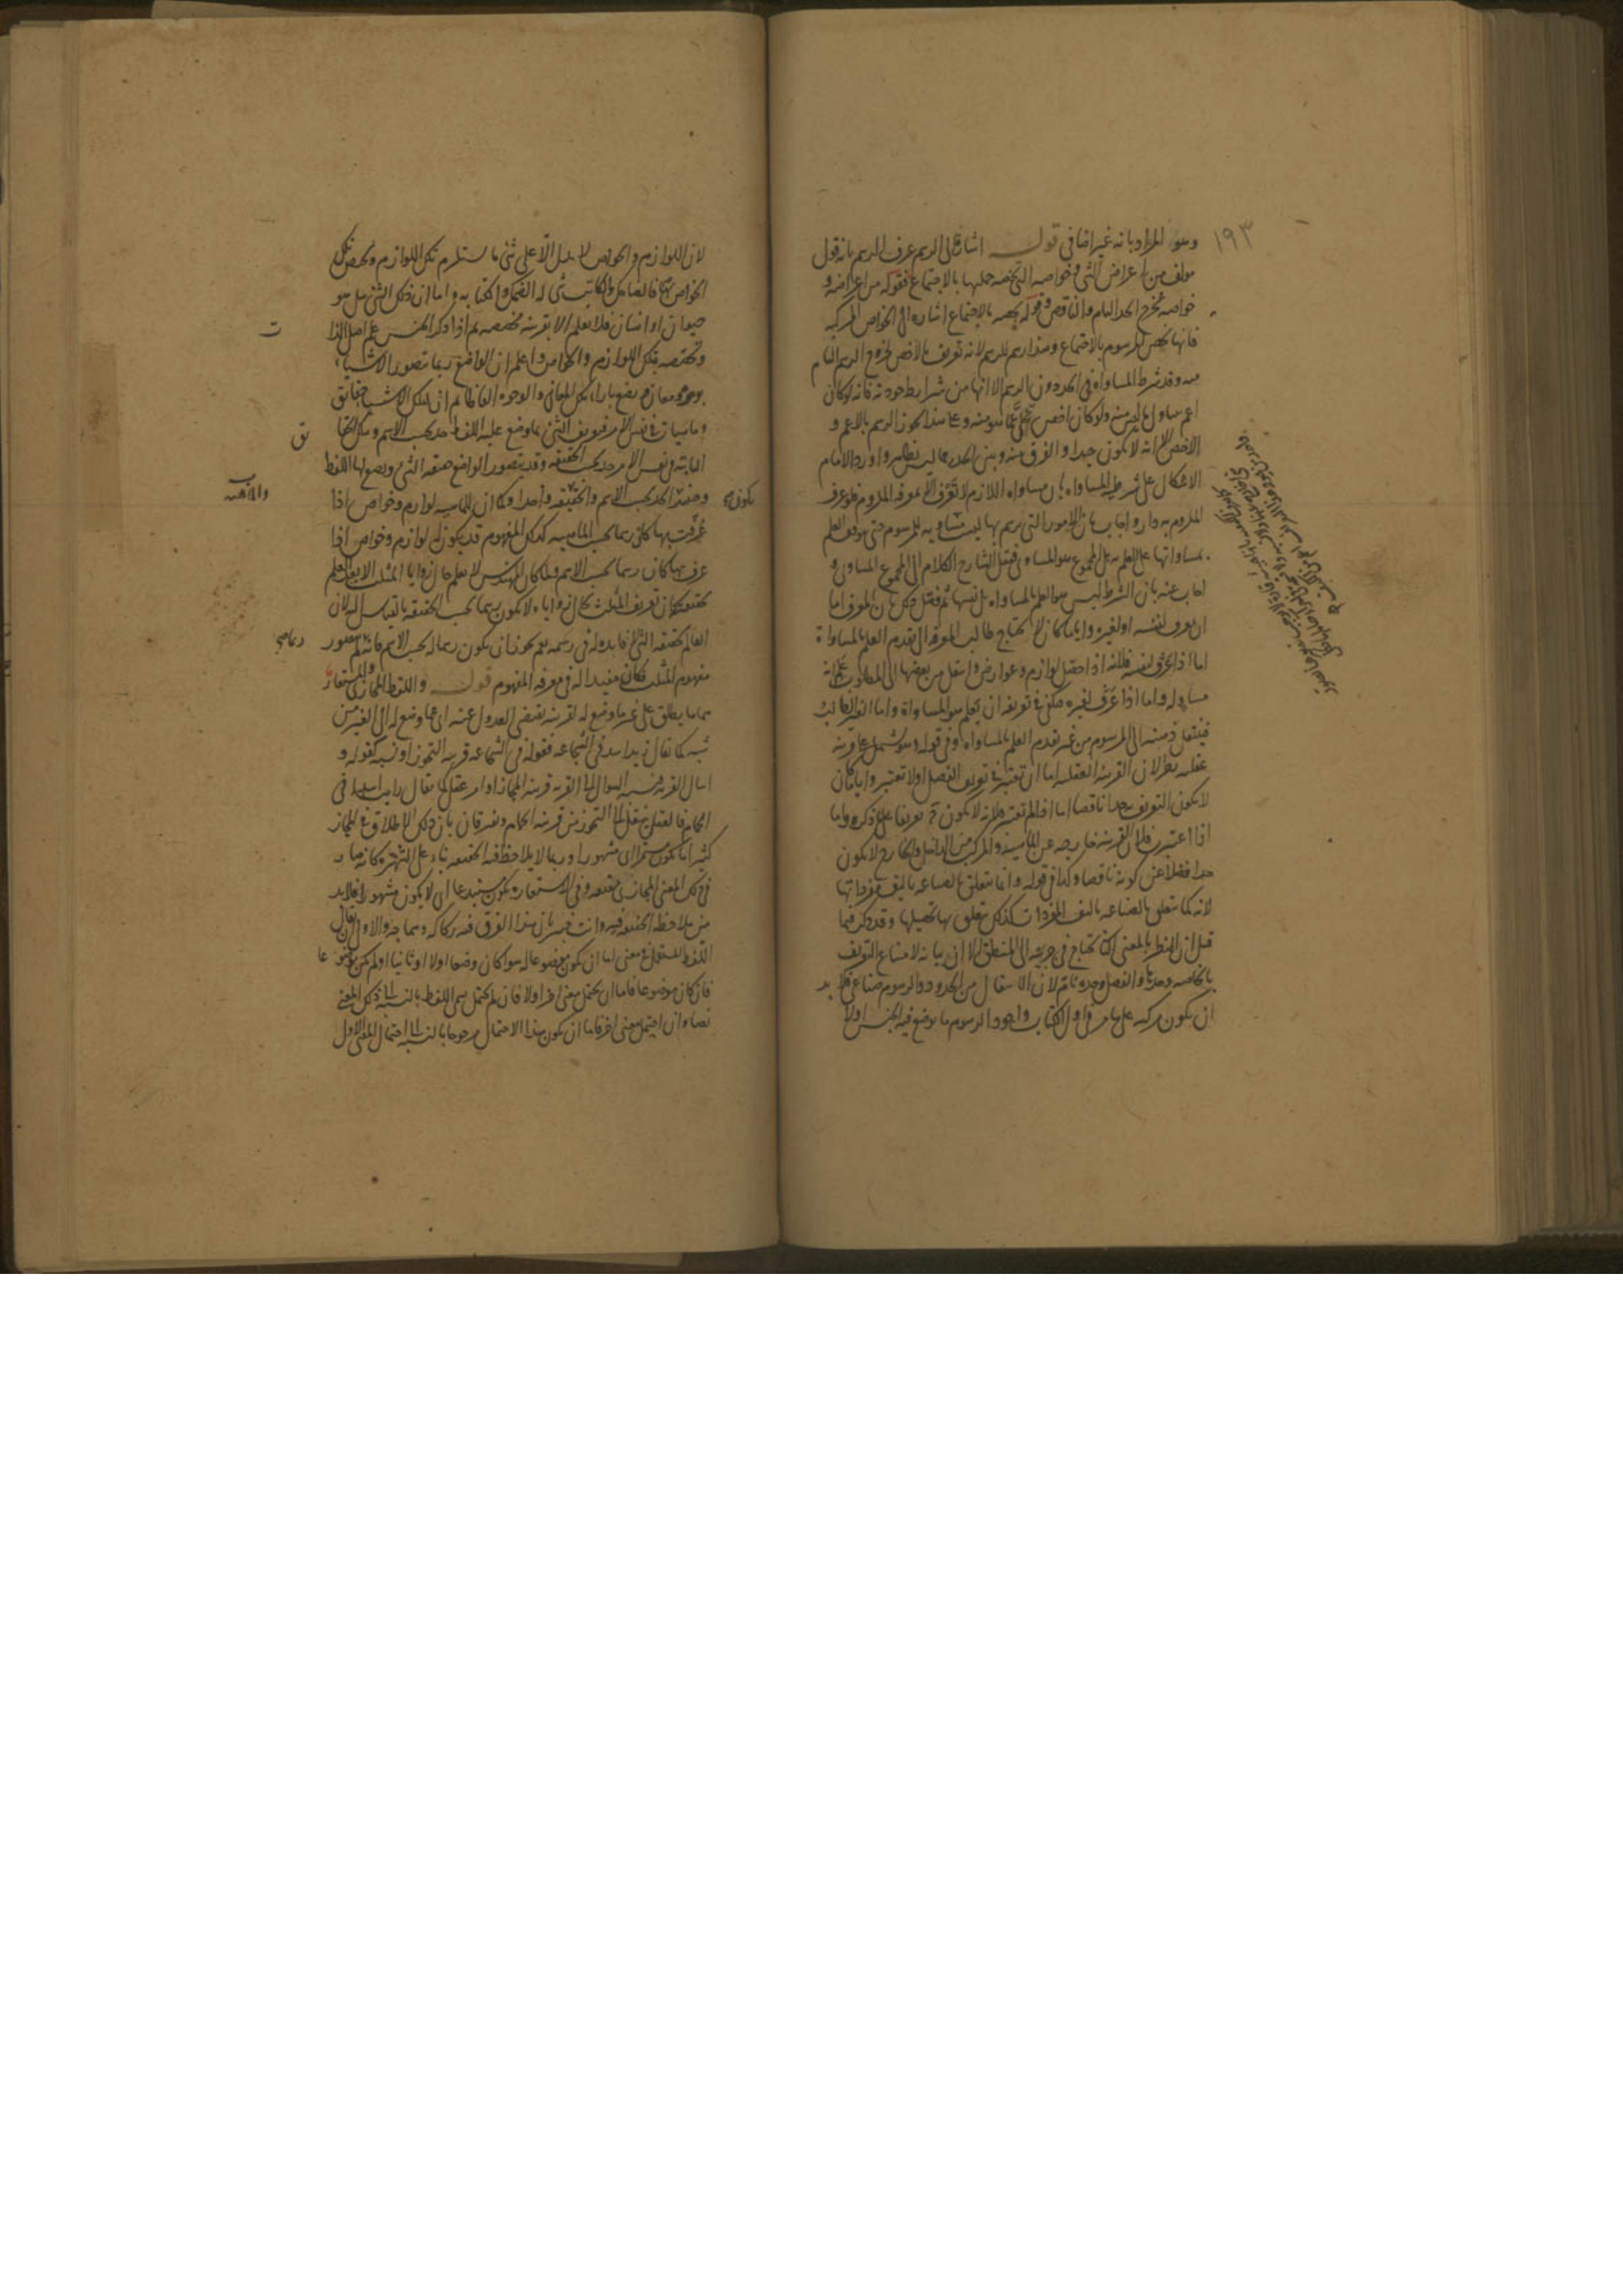 ١٩٣
وهو المراد بانه غير اضافى قوله اشارة الى الرسم عرف الرسم بانه قول
مولف من اعراض الشى وخواصه التى تخصه جملتها بالاجتماع فقوله من اعراضه و
خواصه يخرج الحد التام والناقص وقوله يخصه بالاجتماع اشارة الى الخواص المركبة
فانها تخص المرسوم بالاجتماع وهذا رسم للرسم لانه تعريف بالاخص لخروج الرسم التام
منه وقد شرط المساواه فى الحد دون الرسم الا انها من شرايط جودته فانه لو كان
اعم تناول ما ليس منه ولو كان اخص عما هو منه وعلى هذا يكون الرسم بالاعم و
الاخص الا انه لا يكون جيدا والفرق بينه وبين الحد واورد الامام
الاشكال على شرطية المساواه بان مساواه اللازم لا تعرف الا بمعرفه الملزوم فلو عرف
الملزوم به دار واجاب بان الامور التى يرسم بها ليست مساويه للمرسوم حتى يتوقف العلم
بمساواتها على العلم به بل المجموع هو المساوى فنقل الشارح الكلام الى المجموع المساوى و
اجاب عنه بان الشرط ليس هو العلم بالمساواه بل نفسها ثم فصل ذلك بان المعرف اما
ان يعرف لنفسه او لغيره واياما كان لا يحتاج طالب المعرفه الى تقدم العلم بالمساواة
اما اذا عرف لنفسه فلانه اذا حصل لوازم وعوارض وانتقل من بعضها الى المطلوب علم انه
مساو له واما اذا عرف لغيره فيكفى فى تعريفه ان يعلم هو المساواة واما الغير الطالب
فينتقل ذهنه الى المرسوم من غير تقدم العلم بالمساواه وفى قوله وهو يشتمل على قرينة
عقليه نظر لان القرينة العقليه اما ان تعتبر فى تعريف الفصل او لا تعتبر واياما كان
لا يكون التعريف به حدا ناقصا اما اذا لم تعتبر فلانه لا يكون تعريفا على ما ذكره واما
اذا اعتبرت فلان القرينة خارجه عن الماهية والمركب من الداخل والخارج لا يكون
حدا فضلا عن كونه ناقصا وكذا فى قوله وانما يتعلق بالصناعه تاليف مفرداتها
لانه كما يتعلق بالصناعه تاليف المفردات كذلك يتعلق بها تحصيلها وقد ذكر فيما
قبل ان النظر بالمعنى الذى يحتاج فى جزييه الى المنطق الا ان بيانه لامتناع التعريف
بالخاصه وحدها والفصل وحده تام لان الانتقال من الحدود والرسوم صناعى فلا بد
ان يكون مركبه على ما مر فى اول الكتاب واجود الرسوم ما يوضع فيه الجنس اولا
لان اللوازم والخواص لا يدل الا على شى ما يستلزم تلك اللوازم ويختص بتلك
الخواص فالضاحك والكاتب شى له الضحك والكتابه واما ان ذلك الشى هل هو
حيوان او انسان فلا يعلم الا بقرينه مخصصه ثم اذا ذكر الجنس علم اصل الذات
وتخصصه بتلك اللوازم والخواص واعلم ان الواضع ربما تصور الاشيا
بوجوه ومعان ويضع بازاء تلك المعانى والوجوه الفاظا ثم ان لتلك الاشيا حقايق
وماهيات فى نفس الامر فتعريف الشى بما وضع عليه اللفظ حد بحسب الاسم وبتلك الحقايق
الثابته فى نفس الامر حد بحسب الحقيقه وقد يتصور الواضع حقيقه الشى ويضع لها اللفظ
وحينئذ يكون الحد بحسب الاسم والحقيقه واحدا وكما ان للماهيه لوازم وخواص اذا
عرفت بها كان رسما بحسب الماهيه كذلك المفهوم قد يكون له لوازم وخواص اذا
عرف بها كان رسما بحسب الاسم ولما كان المهندس لا يعلم حال زوايا المثلث الا بعد العلم
بحقيقته كان تعريف المثلث بحال زواياه لا يكون رسما بحسب الحقيقه بالقياس اليه لان
العالم بحقيقه الشى لا فايده له فى رسمه نعم يجوز ان يكون رسما له بحسب الاسم فانه ربما لم يتصور
مفهوم المثلث فكان مفيدا له فى معرفه المفهوم قوله واللفظ المجازى والمستعار
هما ما يطلق على غير ما وضع له لقرينه تقتضى العدول عنه اى عما وضع له الى الغير من
شبه كما يقال زيد اسد فى الشجاعه فقوله فى الشجاعه قرينه التجوز او نسبه كقوله و
اسال القريه فنسبه السوال الى القريه قرينه المجاز او امر عقلى كما يقال رايت اسدا فى
الحمام فالعقل ينتقل الى التجوز من قرينه الحمام ويفترقان بان ذلك الاطلاق فى المجاز
كثيرا ما يكون مستمرا اى مشهورا وربما لا يلاحظ فيه الحقيقه بناء على الشهره كانه صار
فى ذلك المعنى المجازى حقيقه وفى الاستعاره يكون مبتدعا اى لا يكون مشهورا فلا بد
من ملاحظه الحقيقه فيه وانت خبير بان هذا الفرق فيه ركاكه وسماجه والاولى ان يقال
اللفظ المستعمل فى معنى اما ان يكون موضوعا له سوا كان وضعا اولا او ثانيا او لم يكن موضوعا
فان كان موضوعا فاما ان يحتمل معنى اخر او لا فان لم يحتمل سمى اللفظ بالنسبه الى ذلك المعنى
نصا وان احتمل معنى اخر فاما ان يكون هذا الاحتمال مرجوحا بالنسبه الى احتمال المعنى الاول